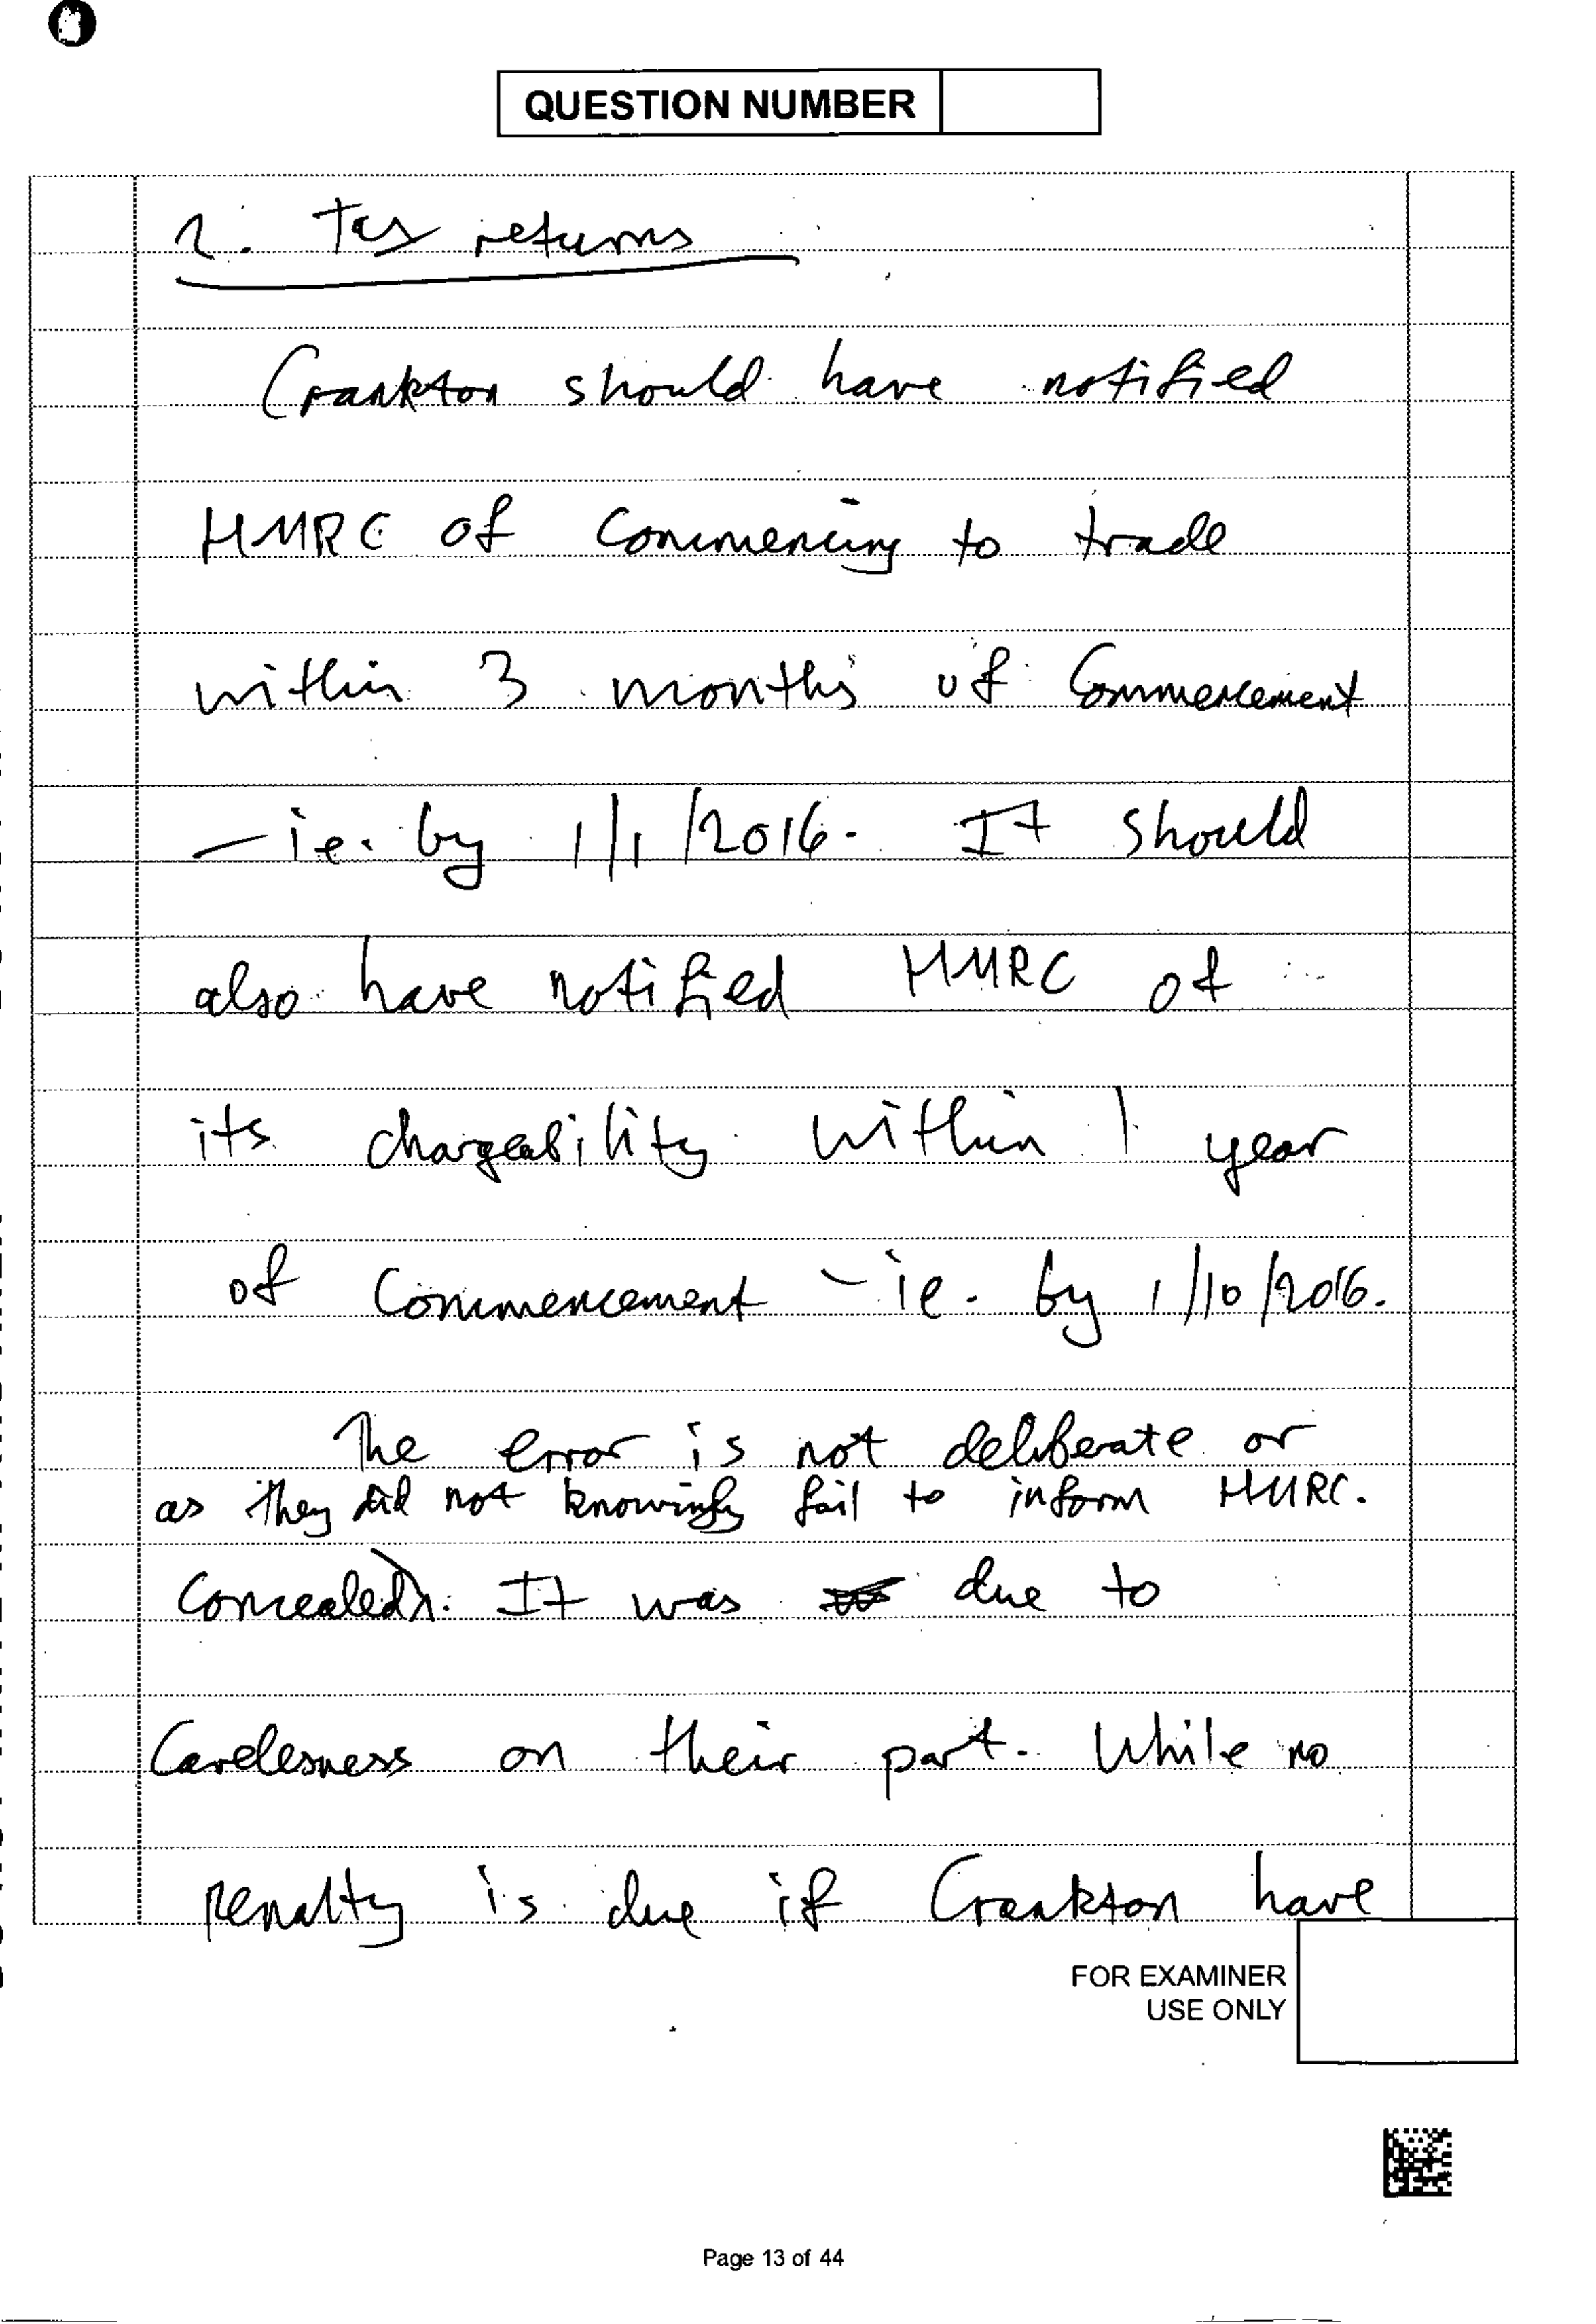 QUESTION NUMBER
2. Tax returns
Crankton should have notified
HMRC of commencing to trade
within 3 months of Commencement
- ie. by 1/1/2016. It should
also have notified HMRC of
its chargeability within 1 year
of Commencement - ie. by 1/10/2016.
The error is not deliberate or
as they did not knowingly fail to inform HMRC.
Concealed. It was due to
Carelesness on their part. While no
penalty is due if Crankton have
FOR EXAMINER
USE ONLY
Page 13 of 44